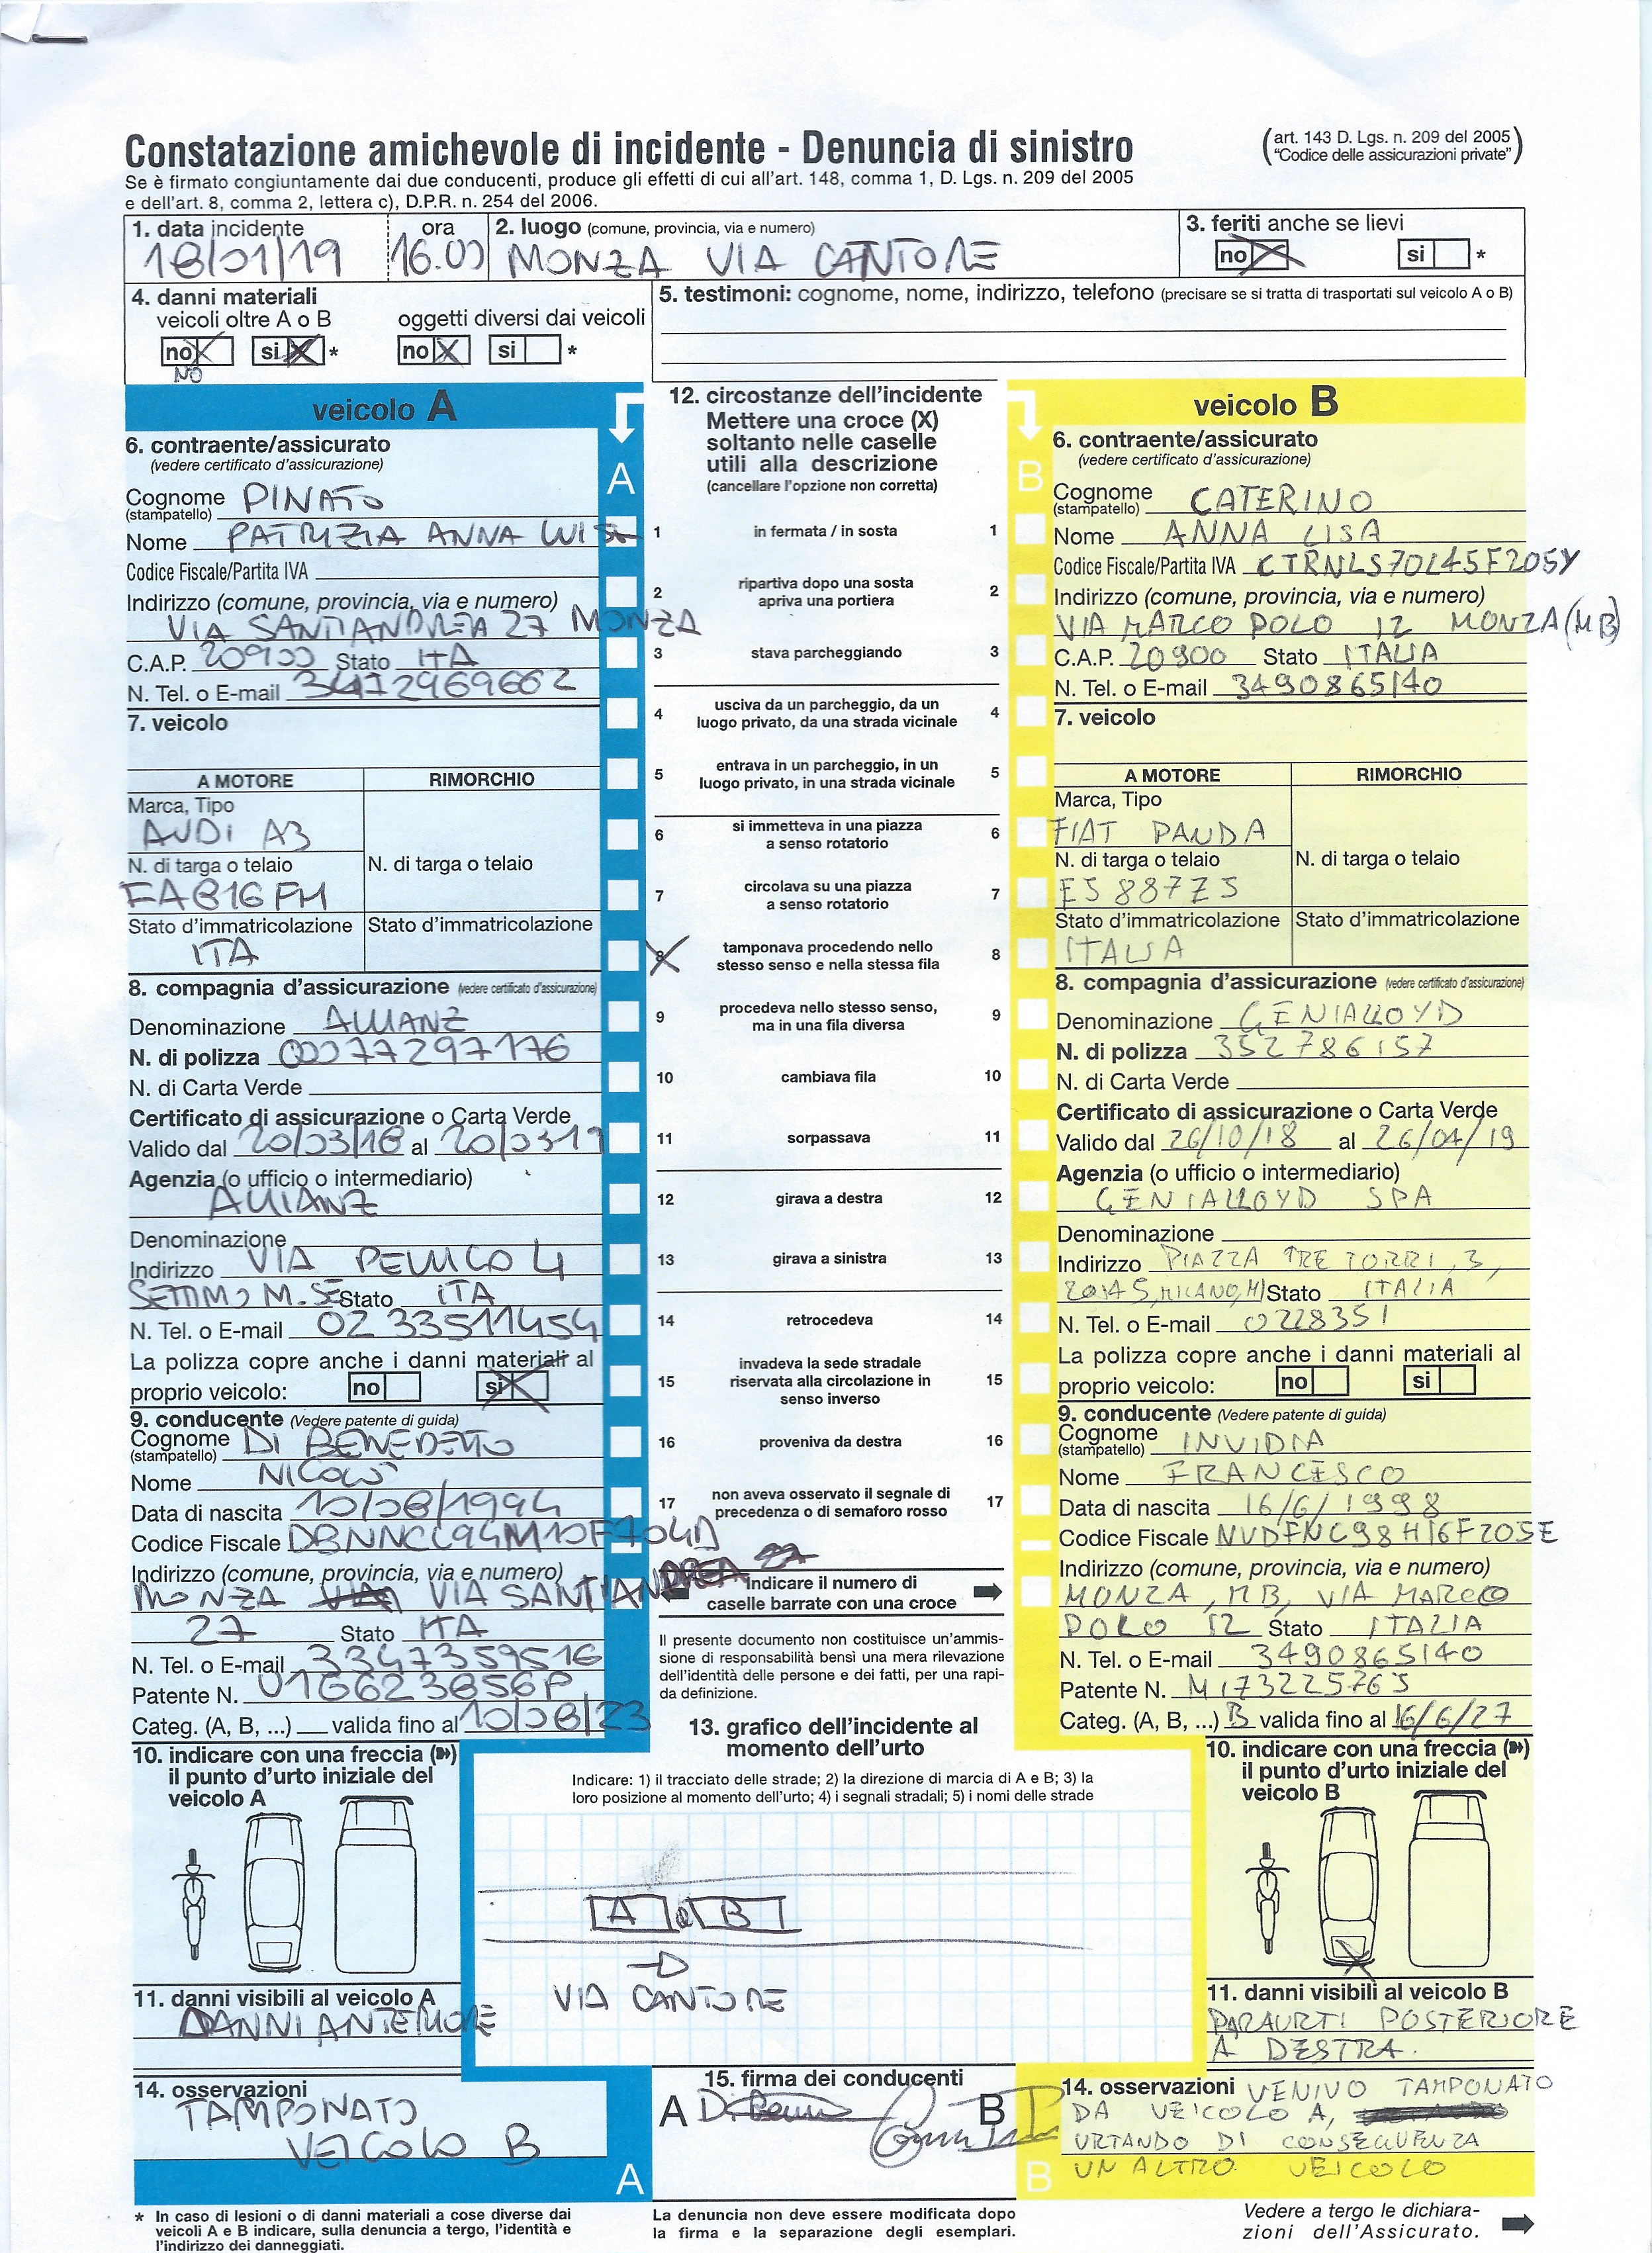 Constatazione amichevole di incidente - Denuncia di sinistro
(art. 143 D. Lgs. n. 209 del 2005
"Codice delle assicurazioni private")
Se è firmato congiuntamente dai due conducenti, produce gli effetti di cui all'art. 148, comma 1, D. Lgs. n. 209 del 2005
e dell'art. 8, comma 2, lettera c), D.P.R. n. 254 del 2006.
1. data incidente
18/01/19
ora
16.00
2. luogo (comune, provincia, via e numero)
MONZA VIA CANTORE
3. feriti anche se lievi
no si *
4. danni materiali
veicoli oltre A o B
no si *
NO
oggetti diversi dai veicoli
no X si *
5. testimoni: cognome, nome, indirizzo, telefono (precisare se si tratta di trasportati sul veicolo A o B)
veicolo A
6. contraente/assicurato
(vedere certificato d'assicurazione)
Cognome PINATO
(stampatello)
Nome PATRIZIA ANNA LUISA
Codice Fiscale/Partita IVA
Indirizzo (comune, provincia, via e numero)
VIA SANT'ANDREA 27 MONZA
C.A.P. 20900 Stato ITA
N. Tel. o E-mail 3472969662
7. veicolo
A MOTORE RIMORCHIO
Marca, Tipo
AUDI A3
N. di targa o telaio N. di targa o telaio
FA816FM
Stato d'immatricolazione Stato d'immatricolazione
ITA
8. compagnia d'assicurazione (vedere certificato d'assicurazione)
Denominazione ALLIANZ
N. di polizza 00077297176
N. di Carta Verde
Certificato di assicurazione o Carta Verde
Valido dal 20/03/18 al 20/0319
Agenzia (o ufficio o intermediario)
ALLIANZ
Denominazione
Indirizzo VIA PELLICO 4
SETTIMO M.SE Stato ITA
N. Tel. o E-mail 02 33511454
La polizza copre anche i danni materiali al
proprio veicolo: no si
9. conducente (Vedere patente di guida)
Cognome DI BENEDETTO
(stampatello)
Nome NICOLO'
Data di nascita 10/08/1994
Codice Fiscale DBNNCL94M10F704D
Indirizzo (comune, provincia, via e numero)
MONZA VIA SANT'ANDREA
27 Stato ITA
N. Tel. o E-mail 3347359516
Patente N. U16623856P
Categ. (A, B, ...) valida fino al 10/08/23
10. indicare con una freccia
il punto d'urto iniziale del
veicolo A
11. danni visibili al veicolo A
DANNI ANTERIORE
14. osservazioni
TAMPONATO
VEICOLO B
A
12. circostanze dell'incidente
Mettere una croce (X)
soltanto nelle caselle
utili alla descrizione
(cancellare l'opzione non corretta)
A B
1 in fermata / in sosta 1
2 ripartiva dopo una sosta 2
apriva una portiera
3 stava parcheggiando 3
4 usciva da un parcheggio, da un 4
luogo privato, da una strada vicinale
5 entrava in un parcheggio, in un 5
luogo privato, in una strada vicinale
6 si immetteva in una piazza 6
a senso rotatorio
7 circolava su una piazza 7
a senso rotatorio
8 tamponava procedendo nello 8
stesso senso e nella stessa fila
9 procedeva nello stesso senso, 9
ma in una fila diversa
10 cambiava fila 10
11 sorpassava 11
12 girava a destra 12
13 girava a sinistra 13
14 retrocedeva 14
15 invadeva la sede stradale 15
riservata alla circolazione in
senso inverso
16 proveniva da destra 16
17 non aveva osservato il segnale di 17
precedenza o di semaforo rosso
Indicare il numero di
caselle barrate con una croce
Il presente documento non costituisce un'ammis-
sione di responsabilità bensì una mera rilevazione
dell'identità delle persone e dei fatti, per una rapi-
da definizione.
13. grafico dell'incidente al
momento dell'urto
Indicare: 1) il tracciato delle strade; 2) la direzione di marcia di A e B; 3) la
loro posizione al momento dell'urto; 4) i segnali stradali; 5) i nomi delle strade
A B
VIA CANTORE
15. firma dei conducenti
A B
veicolo B
6. contraente/assicurato
(vedere certificato d'assicurazione)
Cognome CATERINO
(stampatello)
Nome ANNA LISA
Codice Fiscale/Partita IVA CTRNLS70L45F205Y
Indirizzo (comune, provincia, via e numero)
VIA MARCO POLO 12 MONZA (MB)
C.A.P. 20900 Stato ITALIA
N. Tel. o E-mail 3490865140
7. veicolo
A MOTORE RIMORCHIO
Marca, Tipo
FIAT PANDA
N. di targa o telaio N. di targa o telaio
ES887ZS
Stato d'immatricolazione Stato d'immatricolazione
ITALIA
8. compagnia d'assicurazione (vedere certificato d'assicurazione)
Denominazione GENIALLOYD
N. di polizza 352786157
N. di Carta Verde
Certificato di assicurazione o Carta Verde
Valido dal 26/10/18 al 26/04/19
Agenzia (o ufficio o intermediario)
GENIALLOYD SPA
Denominazione
Indirizzo PIAZZA TRE TORRI, 3,
20145, MILANO, MI Stato ITALIA
N. Tel. o E-mail 0228351
La polizza copre anche i danni materiali al
proprio veicolo: no si
9. conducente (Vedere patente di guida)
Cognome INVIDIA
(stampatello)
Nome FRANCESCO
Data di nascita 16/6/1998
Codice Fiscale NVDFNC98H16F205E
Indirizzo (comune, provincia, via e numero)
MONZA, MB, VIA MARCO
POLO 12 Stato ITALIA
N. Tel. o E-mail 3490865140
Patente N. MI7322576S
Categ. (A, B, ...) B valida fino al 16/6/27
10. indicare con una freccia
il punto d'urto iniziale del
veicolo B
11. danni visibili al veicolo B
PARAURTI POSTERIORE
A DESTRA.
14. osservazioni VENIVO TAMPONATO
DA VEICOLO A,
URTANDO DI CONSEGUENZA
UN ALTRO VEICOLO
B
* In caso di lesioni o di danni materiali a cose diverse dai
veicoli A e B indicare, sulla denuncia a tergo, l'identità e
l'indirizzo dei danneggiati.
La denuncia non deve essere modificata dopo
la firma e la separazione degli esemplari.
Vedere a tergo le dichiara-
zioni dell'Assicurato.